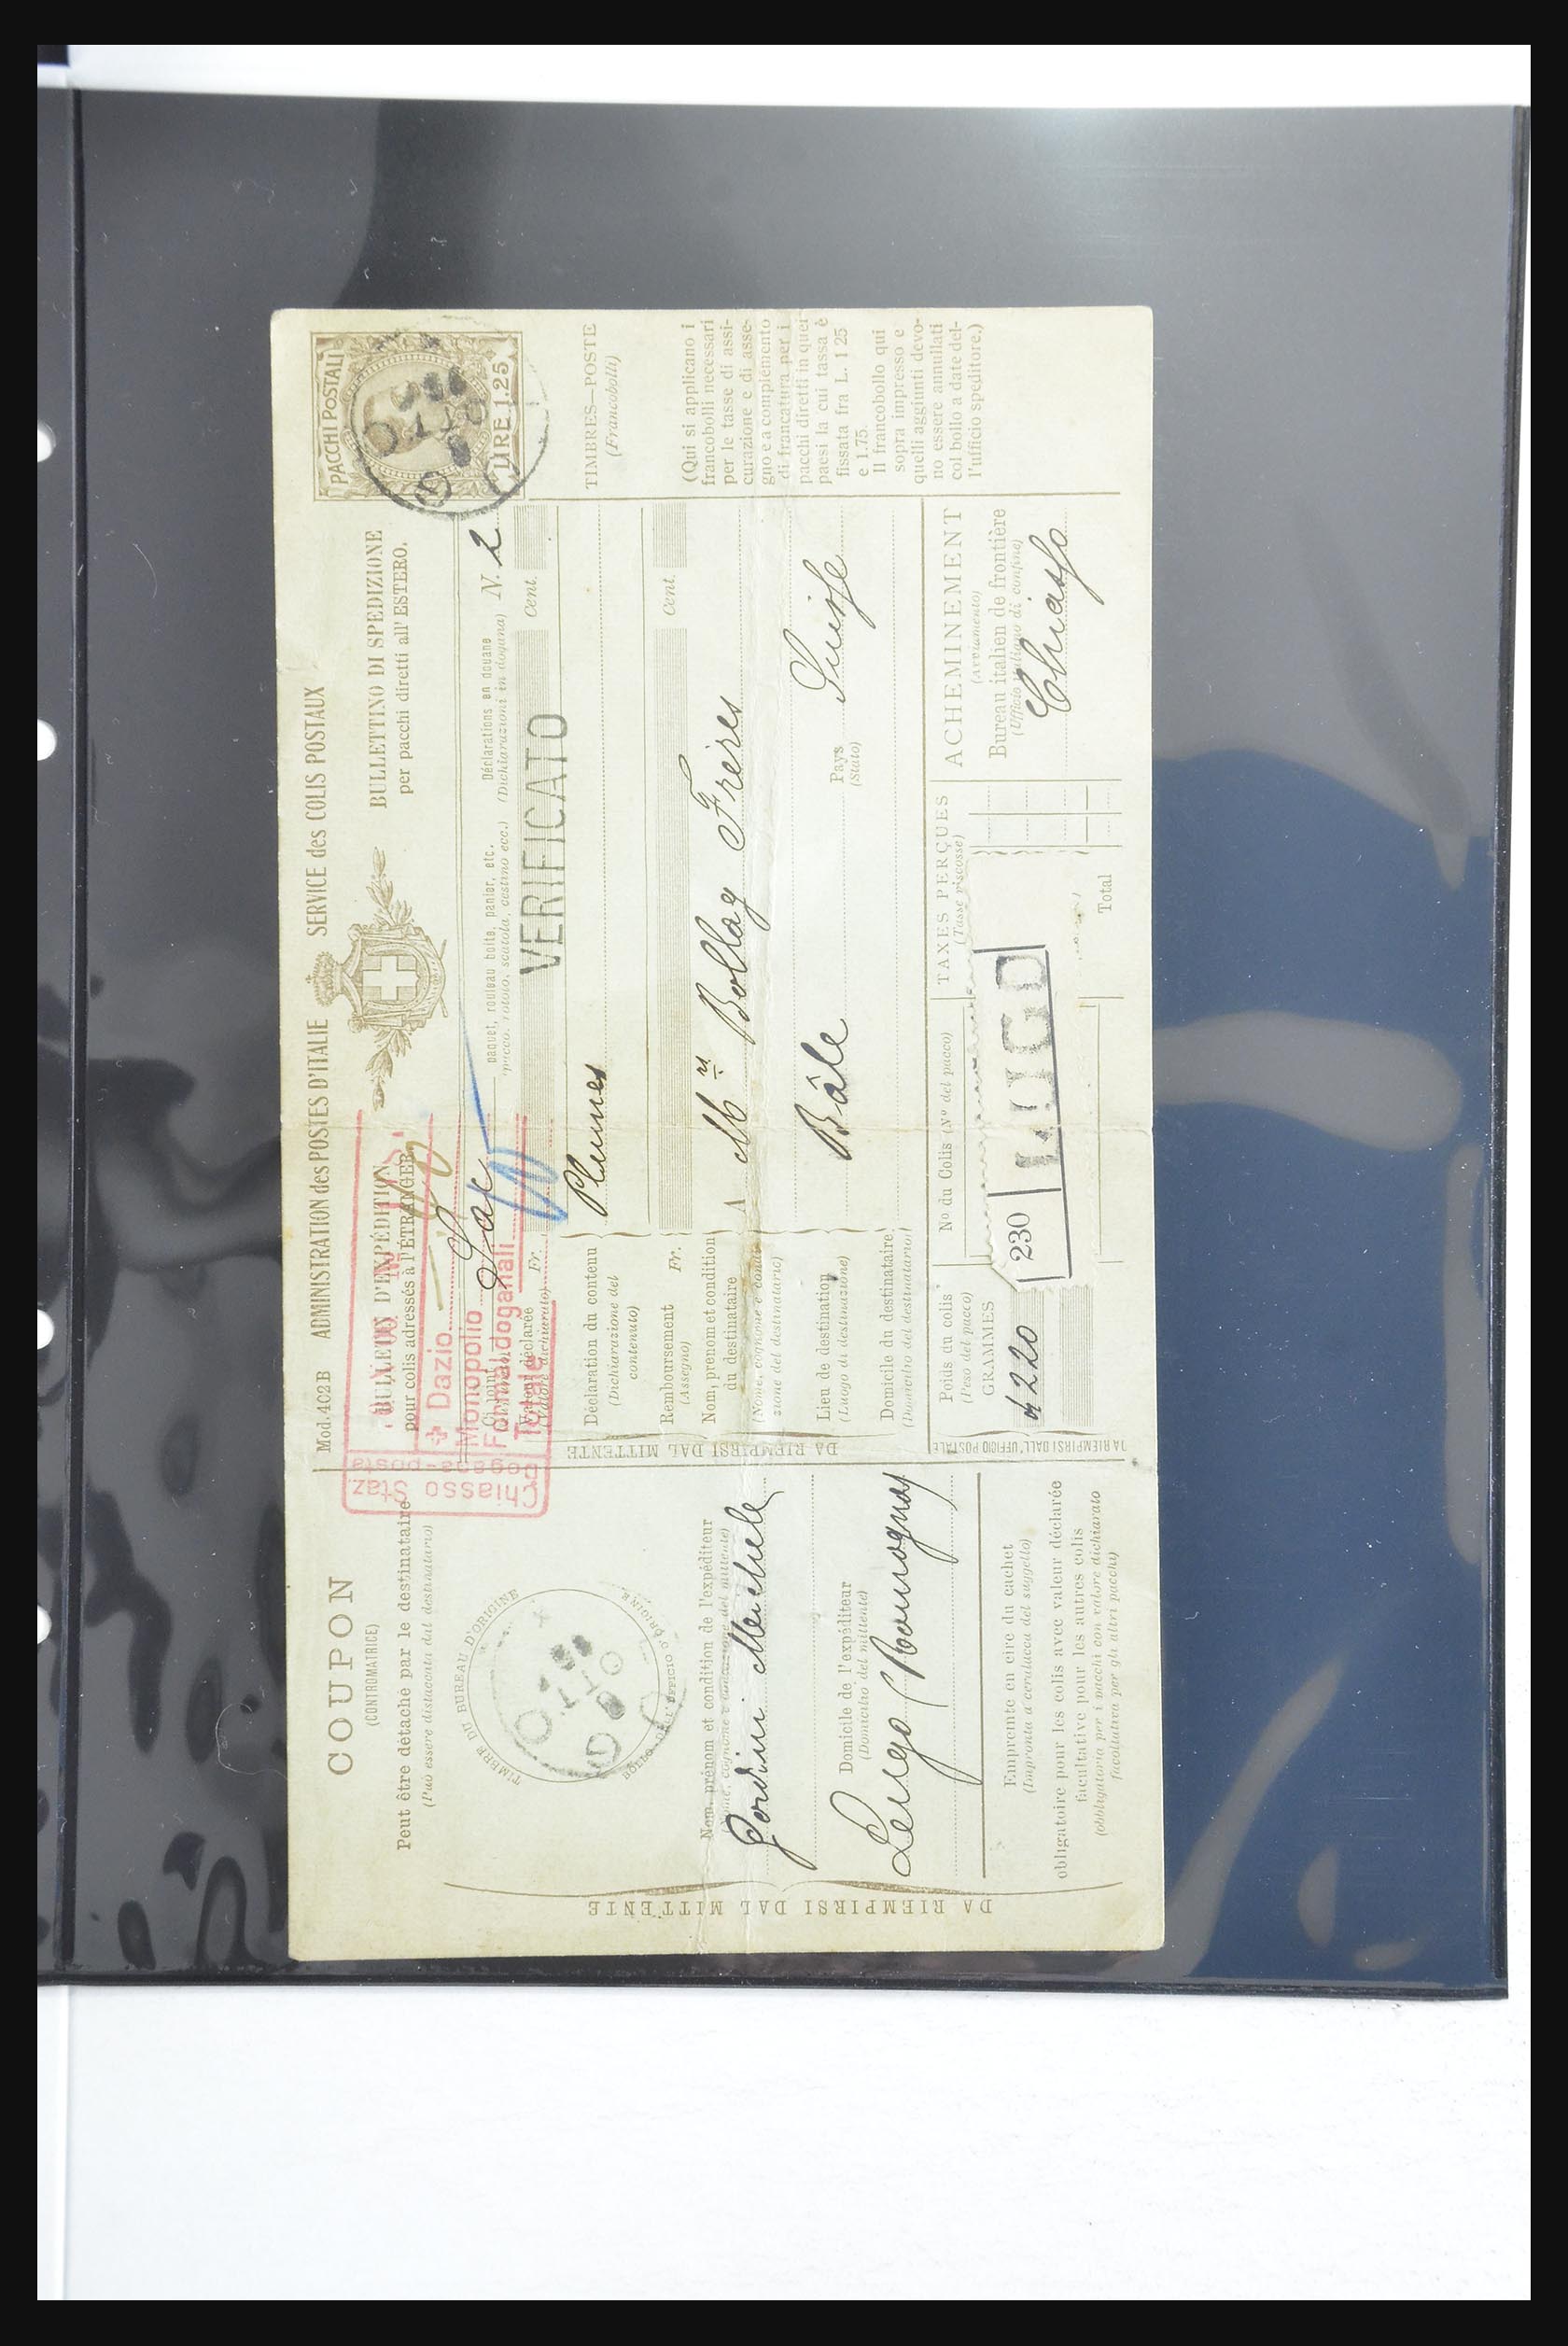 COUPON
(CONTROMATRICE)
Peut être détaché par le destinataire
(Può essere distaccata dal destinatario)
TIMBRE DU BUREAU D'ORIGINE
BOLLO DELL'UFFICIO D'ORIGINE
LUGO
OTT
Nom, prénom et condition de l'expéditeur
(Nome, cognome e condizione del mittente)
Gordini Michele
Domicile de l'expéditeur
(Domicilio del mittente)
Lugo
Empreinte en cire du cachet
(Impronta a ceralacca del suggello)
obligatoire pour les colis avec valeur déclarée
facultative pour les autres colis
(obbligatoria per i pacchi con valore dichiarato
facoltativa per gli altri pacchi)
DA RIEMPIRSI DAL MITTENTE
Mod. 402 B ADMINISTRATION des POSTES D'ITALIE SERVICE des COLIS POSTAUX
BULLETIN D'EXPÉDITION
pour colis adressés à l'ÉTRANGER
BULLETTINO DI SPEDIZIONE
per pacchi diretti all'ESTERO.
Chiasso Staz.
Dogana-posta
Dazio
Monopolio
Formal. doganali
Totale
Ci joint Sac paquet, rouleau boîte, panier, etc. Déclarations en douane N. 2
pacco, rotolo, scatola, cestino ecc.) (Dichiarazioni in dogana)
Valeur déclarée Fr. Cent.
(Valore dichiarato)
VERIFICATO
Déclaration du contenu Plumes
(Dichiarazione del
contenuto)
Remboursement Fr. Cent.
(Assegno)
Nom, prenom et condition
du destinataire
A Mrs Bollag Frères
(Nome, cognome e condi-
zione del destinatario)
Lieu de destination Bâle Pays Suisse
(Luogo di destinazione) (Stato)
Domicile du destinataire
(Domicilio del destinatario)
DA RIEMPIRSI DAL MITTENTE
DA RIEMPIRSI DALL'UFFICIO POSTALE
Poids du colis
(Peso del pacco)
GRAMMES
4220
No du Colis (No del pacco)
230 LUGO
TAXES PERÇUES
(Tasse riscosse)
Total
ACHEMINEMENT
(Avviamento)
Bureau italien de frontière
(Ufficio italiano di confine)
Chiasso
PACCHI POSTALI
LIRE 1.25
TIMBRES—POSTE
(Francobolli)
(Qui si applicano i
francobolli necessari
per le tasse di assi-
curazione e di asse-
gno e a complemento
di francatura per i
pacchi diretti in quei
paesi la cui tassa è
fissata fra L. 1 25
e 1.75.
Il francobollo qui
sopra impresso e
quelli aggiunti devo-
no essere annullati
col bollo a date del-
l'ufficio speditore.)